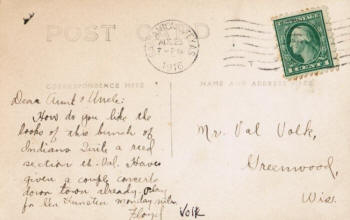 POST CARD
AUG 23
7-PM
1916
1 CENT 1
CORRESPONDENCE HERE
NAME AND ADDRESS HERE
Dear Aunt & Uncle:
How do you like the
looks of this bunch of
Indians Quite a reed
section eh. Val. Have
given a couple concerts
down town already. Play
for Gen Funston monday nite.
Floyd Volk
Mr. Val Volk,
Greenwood,
Wis.